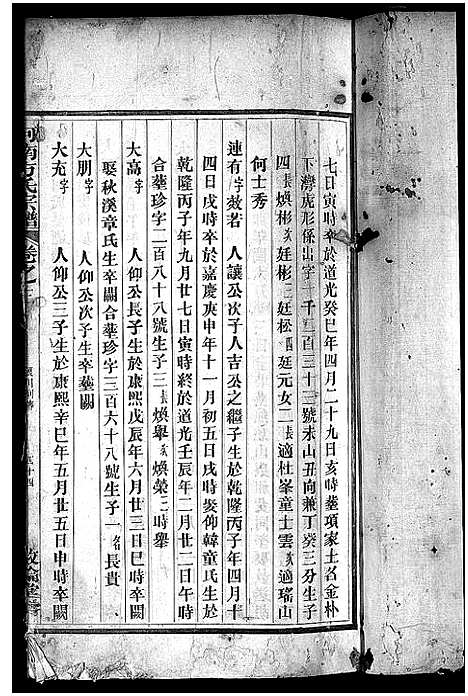 七日寅時卒於道光癸巳年四月二十九日亥時塟項家土名金朴
下灣虎形係出字一千二百三十三號未山丑向兼丁癸三分生子
四長煥彬次廷彬三廷松四廷元女二長適杜峯童士雲次適瑤山
何士秀
連有字敍若 人讓公次子人吉公之繼子生於乾隆丙子年四月十
四日戌時卒於嘉慶庚申年十一月初五日戌時娶仰韓童氏生於
乾隆丙子年九月廿七日寅時終於道光壬辰年二月廿二日午時
合塟珍字二百八十八號生子三長煥舉次煥榮三時舉
大高字 人仰公長子生於康熙戊辰年六月廿三日巳時卒闕
娶秋溪章氏生卒闕合塟珍字三百六十八號生子一名長貴
大朋字 人仰公次子生卒塟闕
大充字 人仰公三子生於康熙辛巳年五月廿五日申時卒闕
河南方氏宗譜 卷之三
敦倫堂